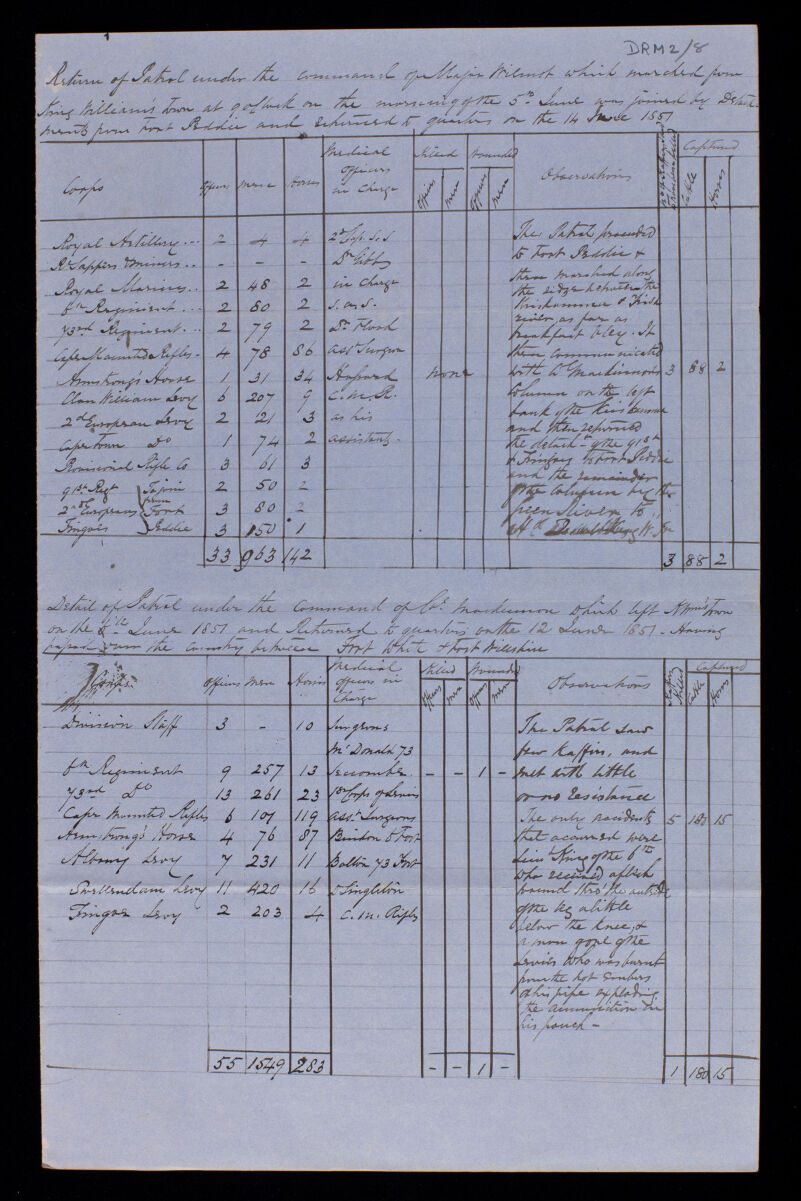 DRM2/8
Return of Patrol under the command of Major Wilmot which marched from
King William's Town at 9 o'clock on the morning of the 5th June was joined by Detach
ments from Fort Peddie and returned to quarters on the 14 June 1851
Corps Officers Men Horses Medical Officers in Charge Killed Wounded Observations Captured
Officers Men Officers Men Cattle Horses
Royal Artillery... 2 4 4
Rl Sappers & Miners.. - - - Dr Gibb
Royal Marines.. 2 48 2 in Charge
6th Regiment... 2 80 2 S. as S.
73rd Regiment... 2 79 2 Dr Flood
Cape Mounted Rifles. 4 78 86 Asst Surgeon
Armstrong's Horse 1 31 34 none 3 88 2
Clan William Levy 6 207 9 C.M.R.
2d European Levy 2 121 3 as his
Cape Town Do 1 74 2 assistants.
Provisional Rifle Co 3 61 3
91st Regt 2 50 2
2nd Europeans 3 80 2
Fingoes 3 150 1
To join from Fort Peddie
33 963 142 3 88 2
The Patrol proceeded
to Fort Peddie &
thence marched along
the ridge between the
Keiskamma & Fish
river as far as
breakfast Vley. It
then communicated
with Cl Mackinnon's
Column on the left
bank of the Keiskamma
and then returned
the detacht of the 91st
& Fingoes to Fort Peddie
and the remainder
of the Column by the
green River to
Detail of Patrol under the Command of Col. Mackinnon which left K Wms Town
on the 6th June 1851 and Returned to quarters on the 12 June 1851. Having
the Country between Fort White & Fort Wiltshire
Corps Officers Men Horses Medical Officers in Charge Killed Wounded Observations Kaffirs Killed Captured
Officers Men Officers Men Cattle Horses
Division Staff 3 - 10 Surgeons
McDonald 73
6th Regiment 9 257 13 Seccombe - - 1 -
73rd Do 13 261 23
Cape Mounted Rifles 6 101 119 Asst Surgeons 5 180 15
Armstrong's Horse 4 76 87
Albany Levy 7 231 11 73
Swellendam Levy 11 420 16 Singleton
Fingoe Levy 2 203 4 C. M. Rifles
The Patrol saw
few Kaffirs, and
met with little
or no resistance
The only accidents
that occurred were
Lieut King of the 6th
who received a flesh
wound thro' the outside
of the leg a little
below the Knee, &
a man of one of the
Levies who was burnt
from the hot embers
of his pipe exploding
the ammunition in
his pouch -
55 1549 283 - - 1 - 1 180 15